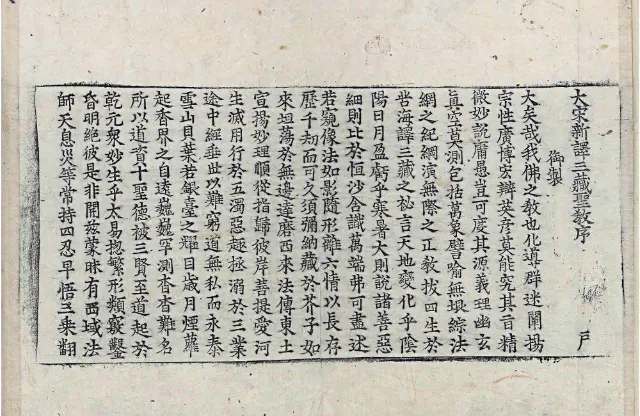 大宋新譯三藏聖教序
御製
大矣哉我佛之教也化導群迷闡揚
宗性廣博宏辯英彦莫能究其旨精
微妙說庸愚豈可度其源義理幽玄
真空莫測包括萬象譬喻無垠綜法
網之紀綱演無際之正教拔四生於
苦海譯三藏之祕言天地變化乎陰
陽日月盈虧乎寒暑大則說諸善惡
細則比於恒沙含識萬端弗可盡述
若窺像法如影隨形離六情以長存
歷千劫而可久須彌納藏於芥子如
來坦蕩於無邊達磨西來法傳東土
宣揚妙理順從指歸彼岸菩提愛河
生滅用行於五濁惡趣拯溺於三業
途中經垂世以難窮道無私而永泰
雪山貝葉若銀臺之耀目歲月煙蘿
起香界之自遠巍巍罕測杳杳難名
所以道資十聖德被三賢至道起於
乾元衆妙生乎太易揔繁形類竅鑿
昏明絕彼是非開茲蒙昧有西域法
師天息災等常持四忍早悟三乘翻